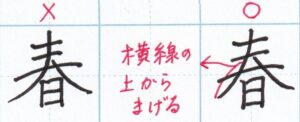 × ○
春
横線の
上から
まげる
春